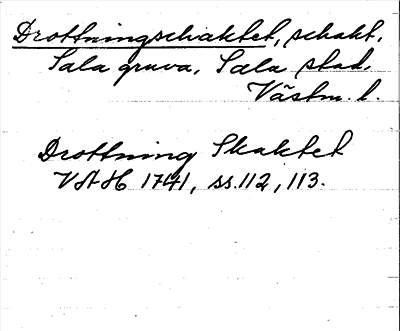 Drottningschaktet, schakt,
Sala gruva, Sala stad.
Västm. l.
Drottning Skaktet
VAH 1741, ss. 112, 113.